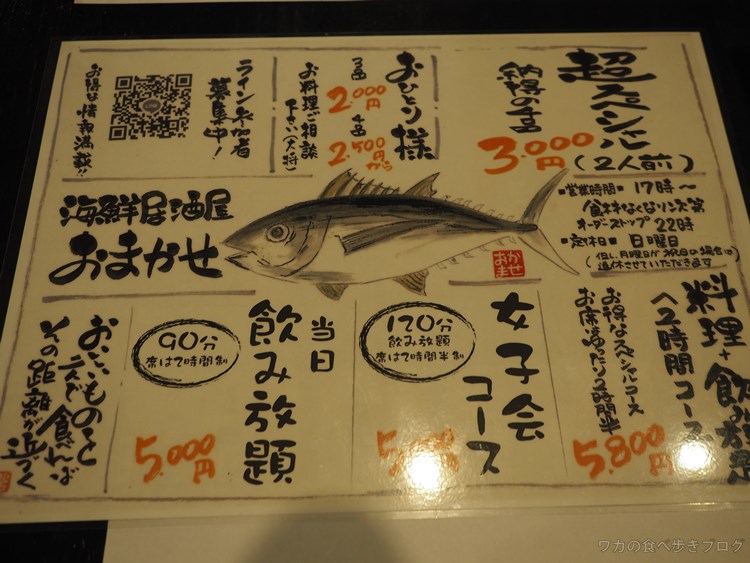 超スペシャル
(2人前)
納得の
3.000円
おひとり様
3品
2.000円
4品
2.500円から
お料理ご相談
下さい(大将)
ライン参加者
募集中!
お得な情報満載!!
海鮮居酒屋
おまかせ
おまかせ
■営業時間■ 17時〜
食材なくなり次第
オーダーストップ 22時
■定休日■ 日曜日
(但し月曜日が祝日の場合は
連休させていただきます
料理+飲み放題
2時間コース
お得なスペシャルコース
お席ゆったり2時間半
5.800円
女子会
コース
120分
飲み放題
席は2時間半制
5.000円
当日
飲み放題
90分
席は2時間制
5.000円
おいしいものを
食べれば
その距離が近づく
ワカの食べ歩きブログ